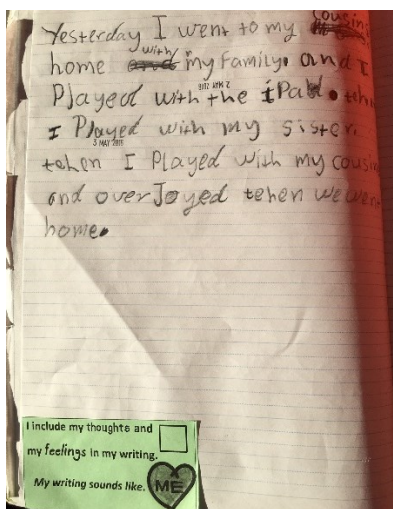 Yesterday I went to my cousins
home with my family. and I
Played with the iPad.
I Played with my sister.
5 MAY 2011
tehen I Played with my cousin
and overJoyed tehen we went
home.
I include my thoughts and
my feelings in my writing.
My writing sounds like. ME